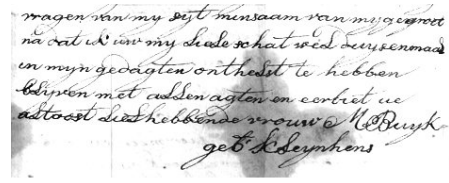 vragen van my syt minsaam van my gegroet
na dat ik uw my liele schat wel duysenmaal
in mijn gedagten onthelst te hebben
blijven met allen agten en eerbiet ue
altoost lief hebbende vrouwe M Buyk
geb